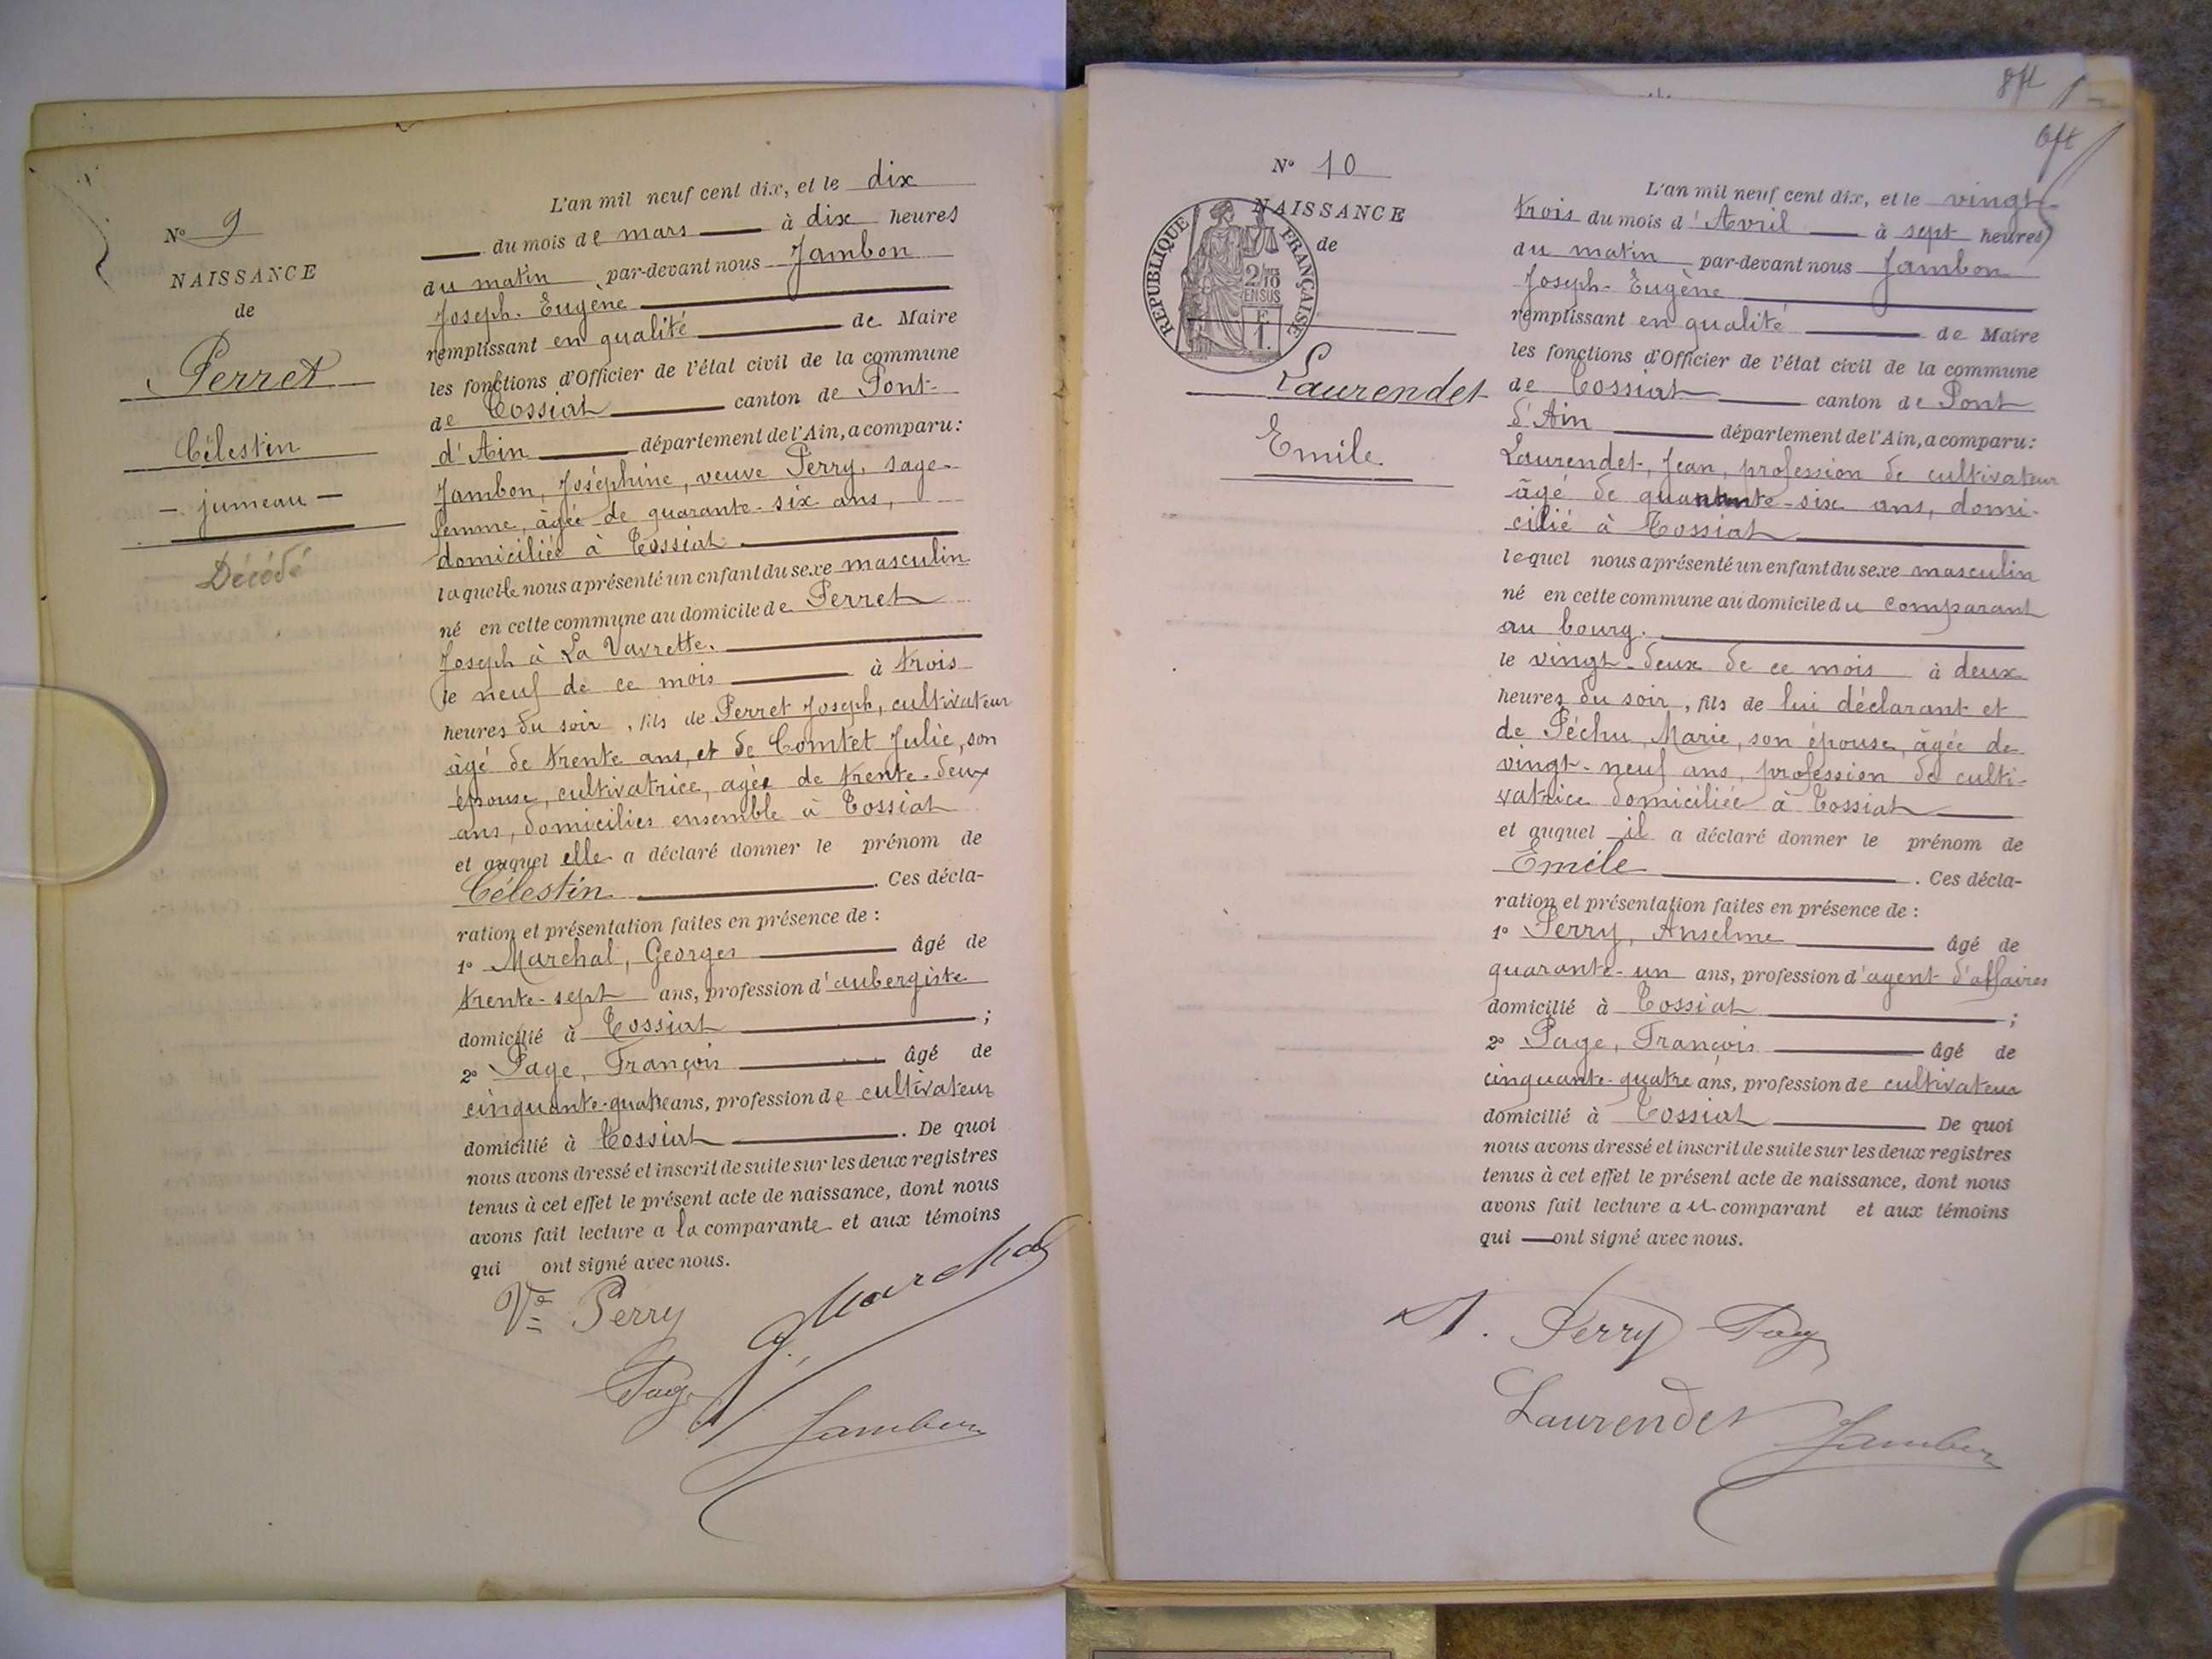 N° 9
NAISSANCE
de
Perret
Célestin
- jumeau -
Décédé
L'an mil neuf cent dix, et le dix
du mois de mars à dix heures
du matin par-devant nous Jambon
Joseph-Eugène
remplissant en qualité de Maire
les fonctions d'Officier de l'état civil de la commune
de Tossiat canton de Pont-
d'Ain département de l'Ain, a comparu:
Jambon, Joséphine, veuve Perry, sage-
femme, âgée de quarante-six ans,
domiciliée à Tossiat.
laquelle nous a présenté un enfant du sexe masculin
né en cette commune au domicile de Perret
Joseph à La Vavrette.
le neuf de ce mois à trois
heures du soir, fils de Perret Joseph, cultivateur
âgé de trente ans, et de Comtet Julie, son
épouse, cultivatrice, agée de trente-deux
ans, domiciliés ensemble à Tossiat
et auquel elle a déclaré donner le prénom de
Célestin. Ces décla-
ration et présentation faites en présence de :
1° Marchal, Georges âgé de
trente-sept ans, profession d'aubergiste
domicilié à Tossiat ;
2° Page, François âgé de
cinquante-quatre ans, profession de cultivateur
domicilié à Tossiat. De quoi
nous avons dressé et inscrit de suite sur les deux registres
tenus à cet effet le présent acte de naissance, dont nous
avons fait lecture a la comparante et aux témoins
qui ont signé avec nous.
Vve Perry
G. Marchal
Page
Jambon
8ft
9ft
N° 10
NAISSANCE
de
REPUBLIQUE FRANÇAISE
2/10
EN SUS
F
1.
Laurendet
Emile
L'an mil neuf cent dix, et le vingt-
trois du mois d'Avril à sept heures
du matin par-devant nous Jambon
Joseph-Eugène
remplissant en qualité de Maire
les fonctions d'Officier de l'état civil de la commune
de Tossiat canton de Pont
d'Ain département de l'Ain, a comparu:
Laurendet, Jean, profession de cultivateur
âgé de quarante-six ans, domi-
cilié à Tossiat
lequel nous a présenté un enfant du sexe masculin
né en cette commune au domicile du comparant
au bourg.
le vingt-deux de ce mois à deux
heures du soir, fils de lui déclarant et
de Péchu, Marie, son épouse, âgée de
vingt-neuf ans, profession de culti-
vatrice domiciliée à Tossiat
et auquel il a déclaré donner le prénom de
Emile. Ces décla-
ration et présentation faites en présence de :
1° Perry, Anselme âgé de
quarante-un ans, profession d'agent d'affaires
domicilié à Tossiat ;
2° Page, François âgé de
cinquante-quatre ans, profession de cultivateur
domicilié à Tossiat De quoi
nous avons dressé et inscrit de suite sur les deux registres
tenus à cet effet le présent acte de naissance, dont nous
avons fait lecture au comparant et aux témoins
qui ont signé avec nous.
A. Perry Page
Laurendet Jambon